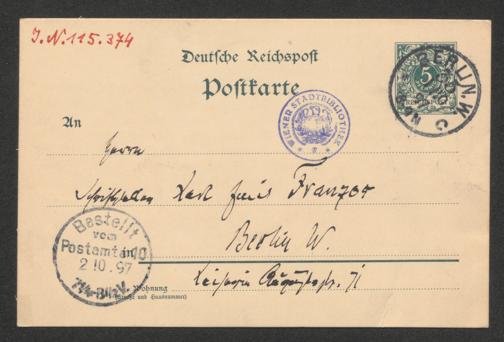 J.N. 115.374
Deutsche Reichspost
Postkarte
5
BERLIN.W.
WIENER STADTBIBLIOTHEK
An
Herrn
Schriftsteller Karl Emil Franzos
Berlin W.
Kaiserin Augustastr. 71
Wohnung
(Straße und Hausnummer)
Bestellt
vom
Postamte 10
2.10.97